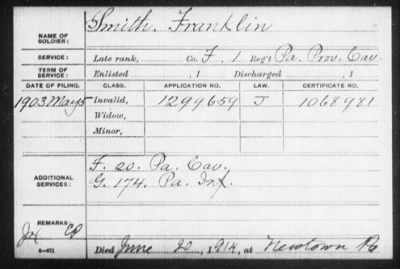 Smith, Franklin
NAME OF SOLDIER:
SERVICE: Late rank, Co. F, 1 Reg't Pa. Prov. Cav.
TERM OF SERVICE: Enlisted , 1 Discharged , 1
DATE OF FILING. CLASS. APPLICATION NO. LAW. CERTIFICATE NO.
1903 May 5 Invalid, 1299659 J 1068981
Widow,
Minor,
ADDITIONAL SERVICES:
F. 20. Pa. Cav.
G. 174. Pa. Inf.
REMARKS:
Died June 20, 1914, at Newtown Pa